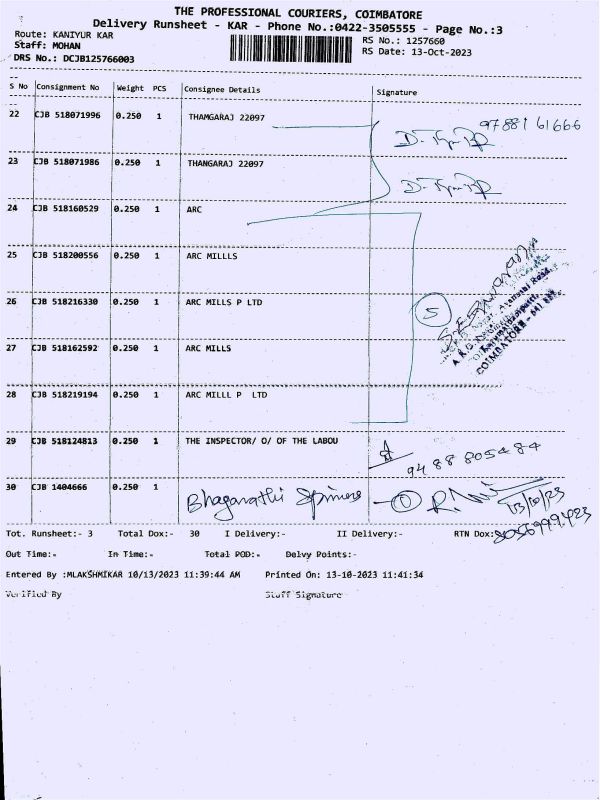 THE PROFESSIONAL COURIERS, COIMBATORE
Delivery Runsheet - KAR - Phone No.:0422-3505555 - Page No.:3
Route: KANIYUR KAR
RS No.: 1257660
Staff: MOHAN
RS Date: 13-Oct-2023
DRS No.: DCJB125766003
S No Consignment No Weight PCS Consignee Details Signature
22 CJB 518071996 0.250 1 THAMGARAJ 22097 97881 61666
23 CJB 518071986 0.250 1 THANGARAJ 22097
24 CJB 518160529 0.250 1 ARC
25 CJB 518200556 0.250 1 ARC MILLLS
26 CJB 518216330 0.250 1 ARC MILLS P LTD 5
27 CJB 518162592 0.250 1 ARC MILLS
COIMBATORE - 641
28 CJB 518219194 0.250 1 ARC MILLL P LTD
29 CJB 518124813 0.250 1 THE INSPECTOR/ O/ OF THE LABOU
94 88 805484
30 CJB 1404666 0.250 1 Bhagavathi Spinners 1
13/10/23
Tot. Runsheet:- 3 Total Dox:- 30 I Delivery:- II Delivery:- RTN Dox:-
8056999423
Out Time:- In Time:- Total POD:- Delvy Points:-
Entered By :MLAKSHMIKAR 10/13/2023 11:39:44 AM Printed On: 13-10-2023 11:41:34
Verified By Staff Signature